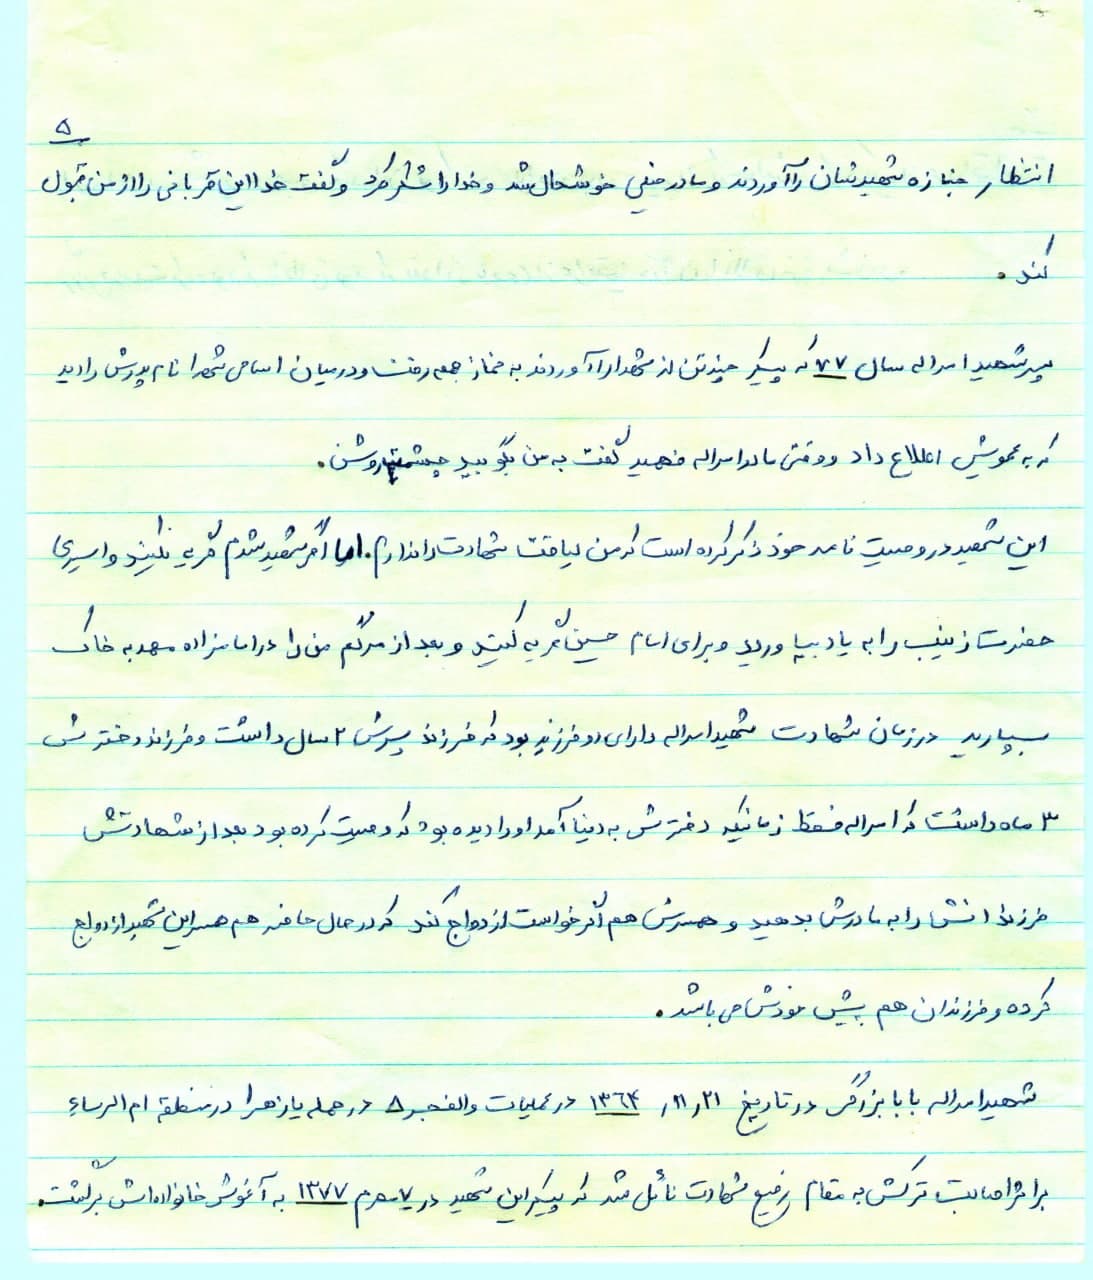 ۵
انتظار جنازه شهیدشان را آوردند و مادر خیلی خوشحال شد و خدا را شکر کرد و گفت خدا این قربانی را از من قبول
کند.
پسر شهید امراله سال ۷۷ که پیکر چند تن از شهدا را آوردند به نماز جمعه رفت و در میان اسامی شهدا نام پدرش را دید
که به عمویش اطلاع داد و وقتی مادر امراله فهمید گفت به من بگویید چشمت روشن.
این شهید در وصیت نامه خود ذکر کرده است که من لیاقت شهادت را ندارم. اما اگر شهید شدم گریه نکنید و اسیری
حضرت زینب را به یاد بیاورید و برای امام حسین گریه کنید و بعد از مرگم من را در امامزاده مهد به خاک
بسپارید در زمان شهادت شهید امراله دارای دو فرزند بود که فرزند پسرش ۲ سال داشت و فرزند دخترش
۳ ماه داشت که امراله فقط زمانیکه دخترش به دنیا آمد او را دیده بود که وصیت کرده بود بعد از شهادتش
فرزندانش را به مادرش بدهید و همسرش هم اگر خواست ازدواج کند که در حال حاضر هم همسر این شهید ازدواج
کرده و فرزندان هم پیش خودش می باشد.
شهید امراله بابا بزرگی در تاریخ ۲۱ / ۱۱ / ۱۳۶۴ در عملیات والفجر ۸ در حمله یا زهرا در منطقه ام الرساء
بر اثر اصابت ترکش به مقام رفیع شهادت نائل شد که پیکر این شهید در ۷ محرم ۱۳۷۷ به آغوش خانواده اش برگشت.